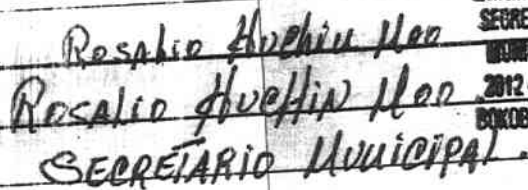 Rosalio Huchin Moo
Rosalio Huchin Moo
SECRETARIO MUNICIPAL.
SECRE
2012